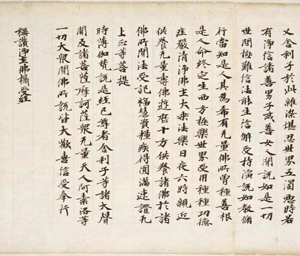 又舍利子於此雜染堪忍世界五濁惡時若
有淨信諸善男子或善女人聞說如是一切
世間極難信法能生信解受持演說如教修
行當知是人甚為希有無量佛所曾種善根
是人命終定生西方極樂世界受用種種功德
莊嚴清淨佛土大乘法樂日夜六時親近
供養無量壽佛遊歷十方供養諸佛於諸
佛所聞法受記福慧資糧疾得圓滿速證无
上正等菩提
時薄伽梵說是經已尊者舍利子等諸大聲
聞及諸菩薩摩訶薩眾無量天人阿素洛等
一切大眾聞佛所說皆大歡喜信受奉行
稱讚淨土佛攝受經